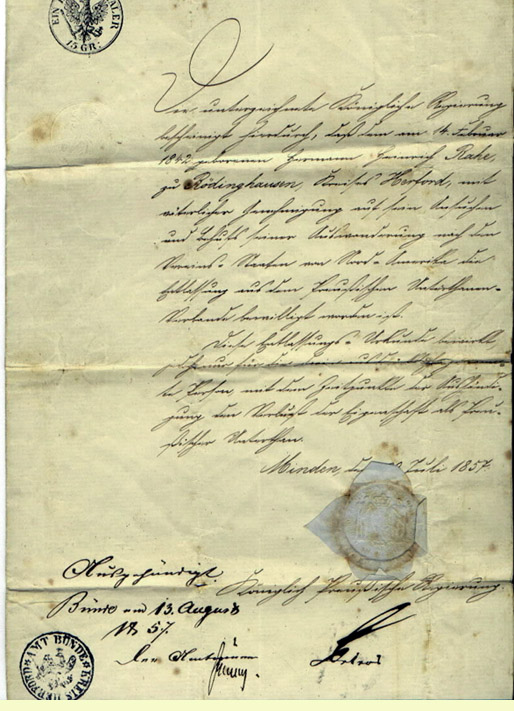 EIN THALER
15 GR:
Die unterzeichnete Königliche Regierung
bescheinigt hierdurch, daß dem am 4. Februar
1842 geborenen Hermann Heinrich Rahe,
zu Rödinghausen, Kreises Herford, mit
väterlicher Genehmigung auf sein Ansuchen
und behufs seiner Auswanderung nach den
Vereins-Staaten von Nord-Amerika die
Entlassung aus dem Preußischen Unterthanen-
Verbande bewilligt worden ist.
Diese Entlassungs-Urkunde bewirkt
jedoch nur für die darin
te Person, mit dem Zeitpunkte der Aushändi-
gung den Verlust der Eigenschaft als Preu-
ßischer Unterthan.
Minden, den Juli 1857.
Königlich Preußische Regierung.
Ausgehändigt
Bünde am 13. August
1857.
Der Amtmann
AMT BÜNDE KREIS HERFORD